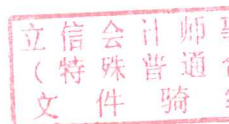 立信会计师
（特殊普通
文件骑